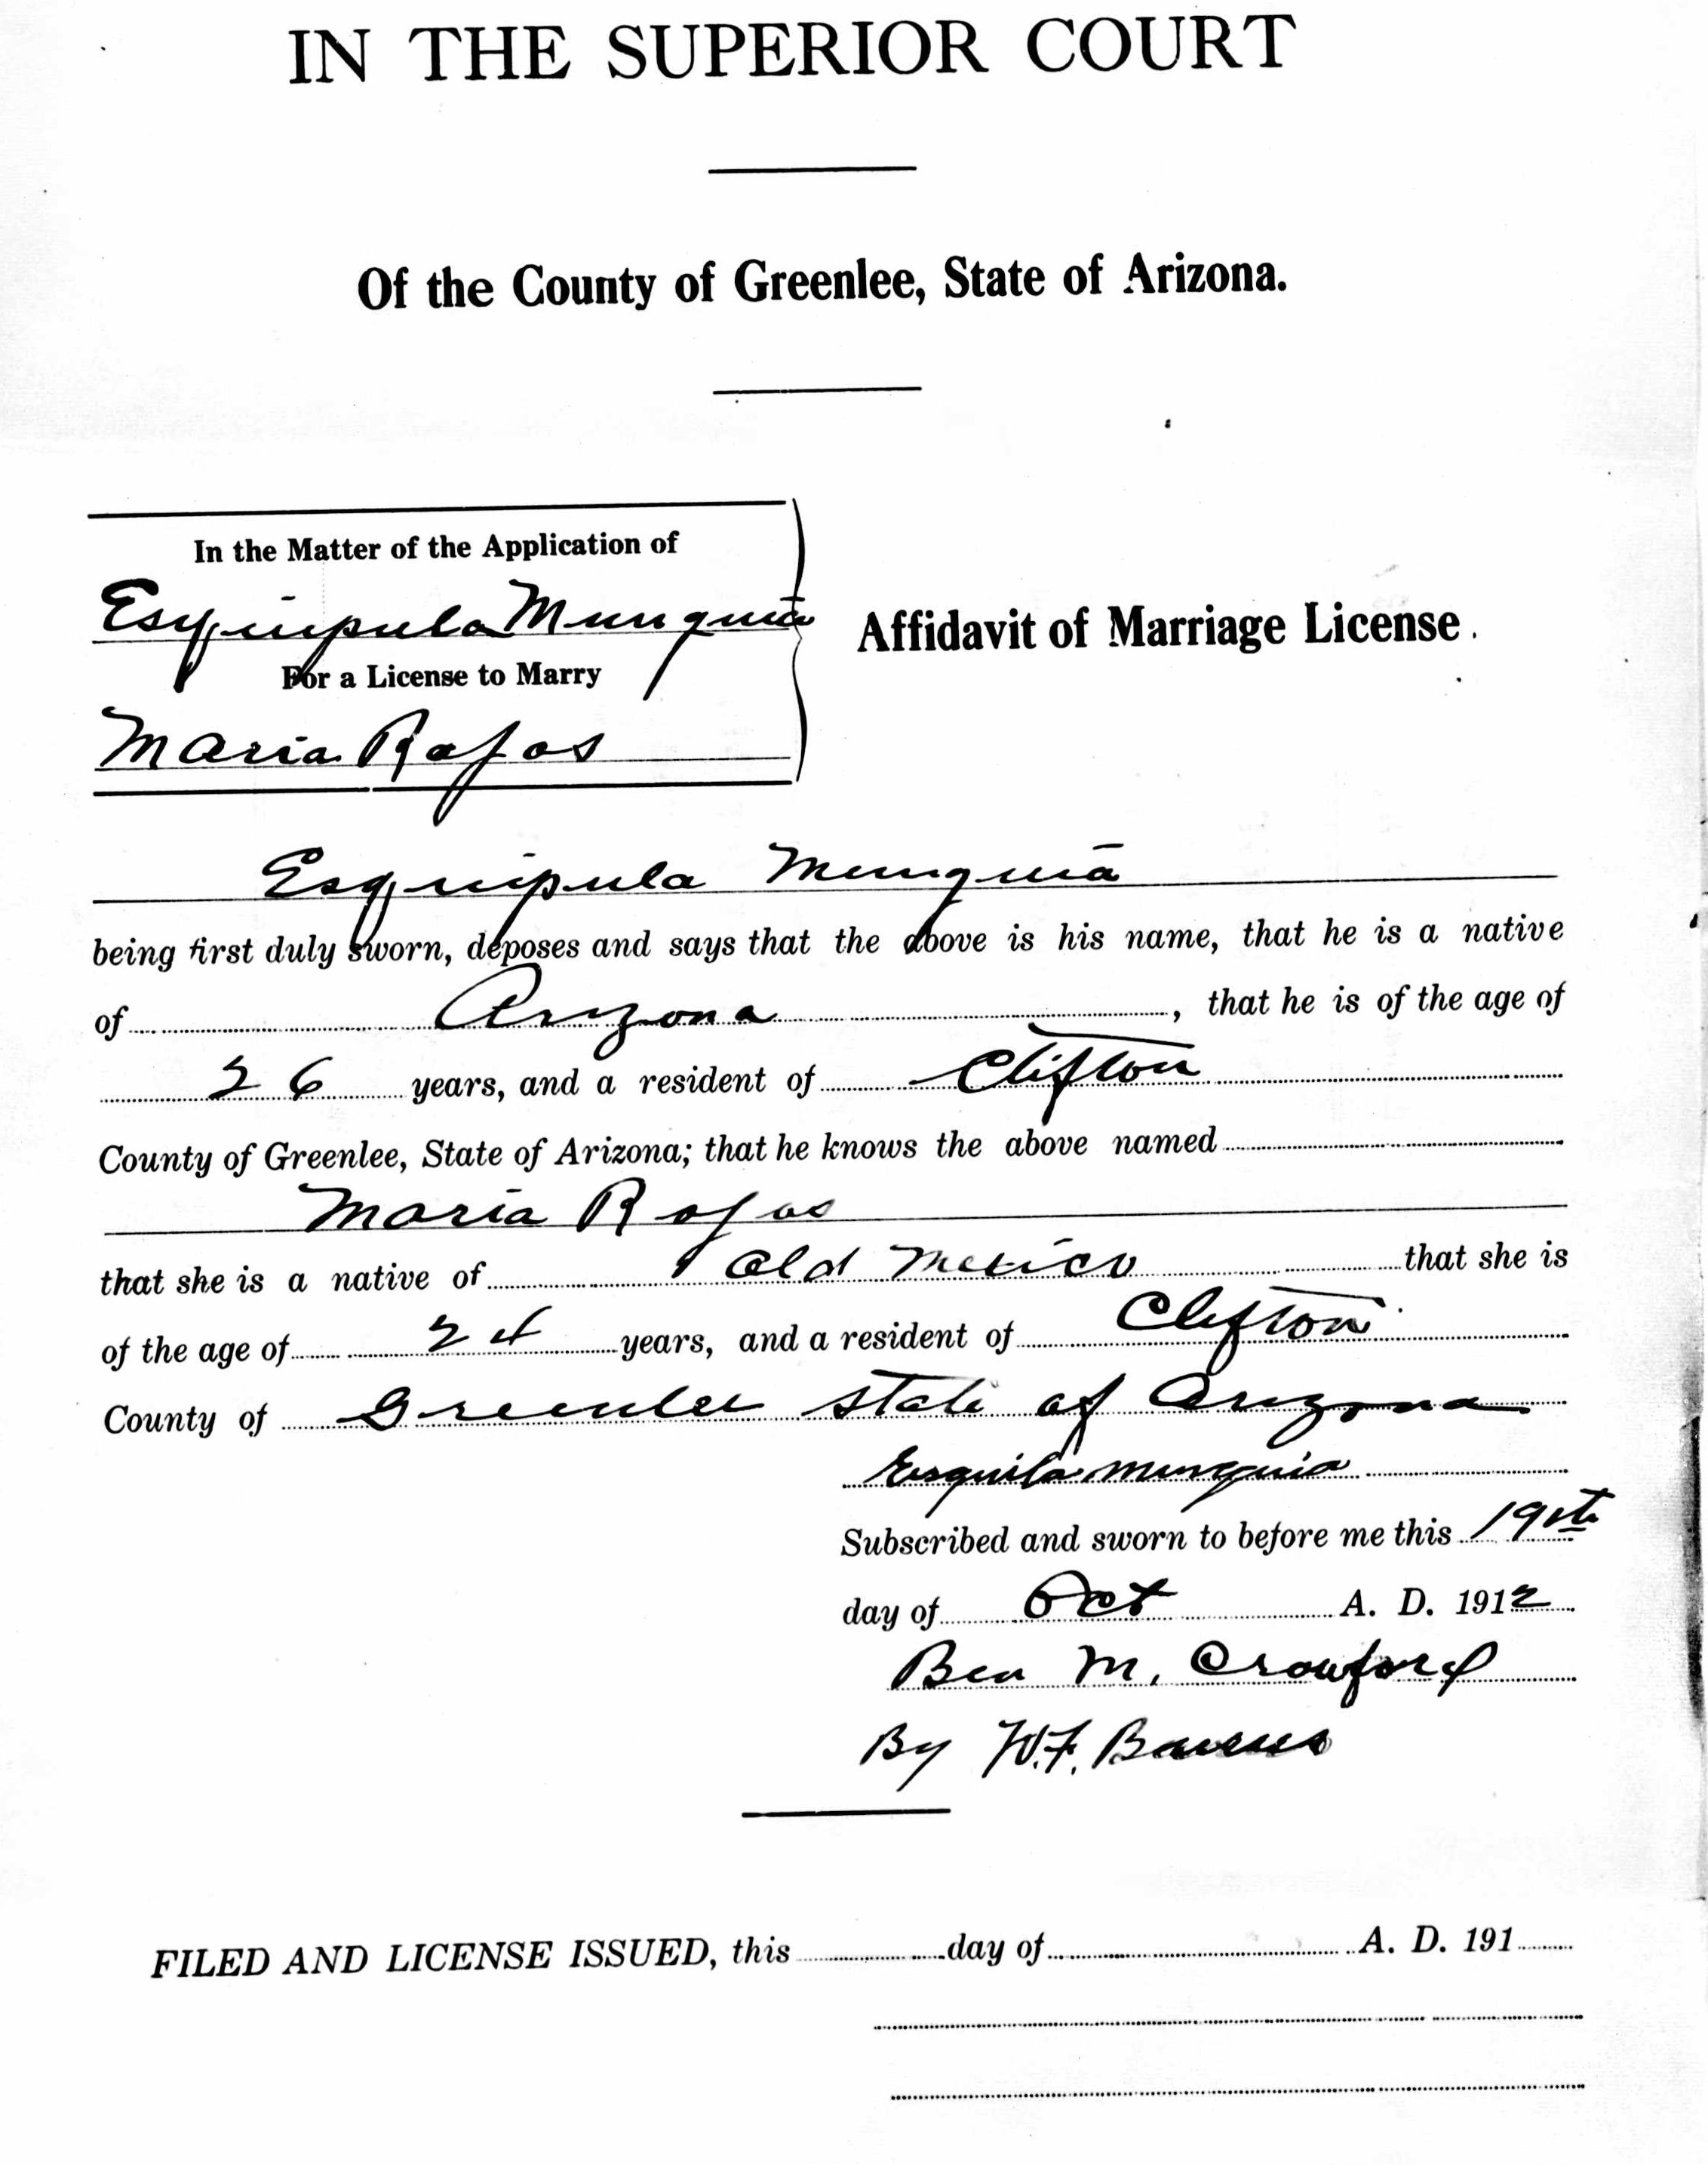 IN THE SUPERIOR COURT
Of the County of Greenlee, State of Arizona.
In the Matter of the Application of
Esquipula Munguia
For a License to Marry
Maria Rojas
Affidavit of Marriage License.
Esquipula Munguia
being first duly sworn, deposes and says that the above is his name, that he is a native
of Arizona, that he is of the age of
26 years, and a resident of Clifton
County of Greenlee, State of Arizona; that he knows the above named
Maria Rojas
that she is a native of Old Mexico that she is
of the age of 24 years, and a resident of Clifton
County of Greenlee State of Arizona
Esquila Munguia
Subscribed and sworn to before me this 19th
day of Oct A. D. 1912
Ben M. Crawford
By W.F.
FILED AND LICENSE ISSUED, this day of A. D. 191